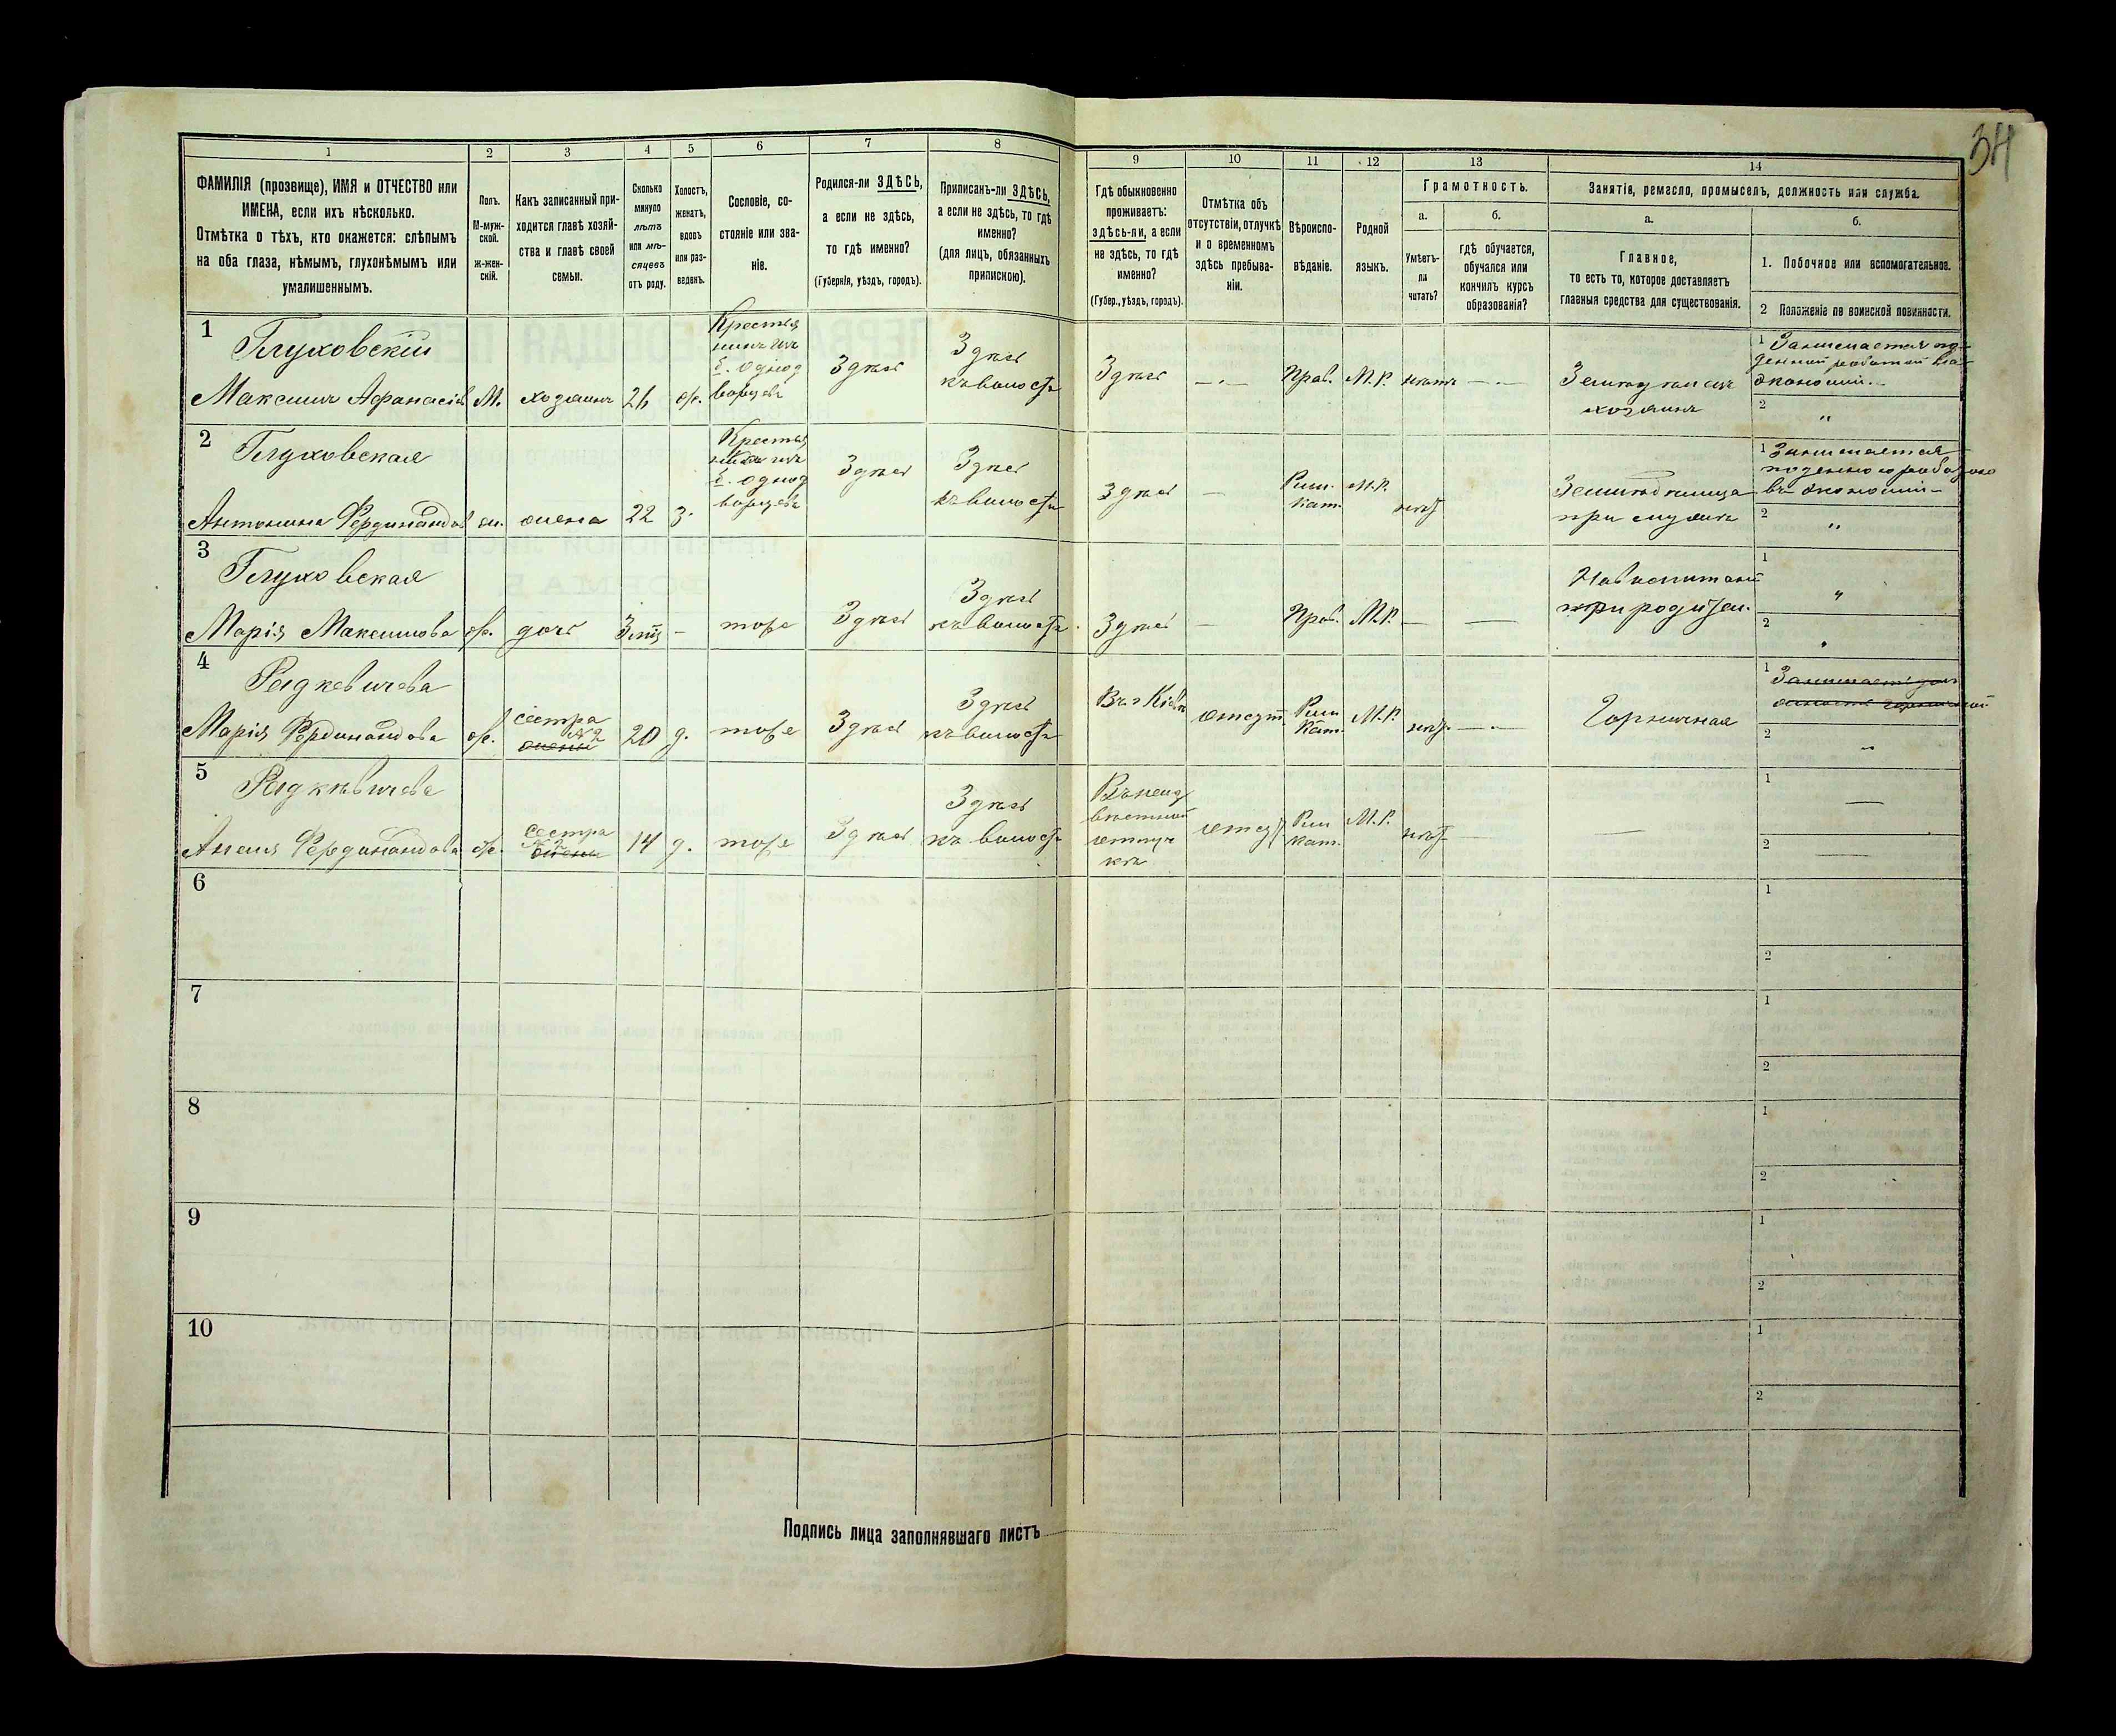 34
1 2 3 4 5 6 7 8 9 10 11 12 13 14
ФАМИЛІЯ (прозвище), ИМЯ и ОТЧЕСТВО или
ИМЕНА, если ихъ нѣсколько.
Отмѣтка о тѣхъ, кто окажется: слѣпымъ
на оба глаза, нѣмымъ, глухонѣмымъ или
умалишеннымъ.
Полъ.
М-муж-
ской.
Ж-жен-
скій.
Какъ записанный при-
ходится главѣ хозяй-
ства и главѣ своей
семьи.
Сколько
минуло
лѣтъ
или мѣ-
сяцевъ
отъ роду.
Холостъ,
женатъ,
вдовъ
или раз-
веденъ.
Сословіе, со-
стояніе или зва-
ніе.
Родился-ли ЗДѢСЬ,
а если не здѣсь,
то гдѣ именно?
(Губернія, уѣздъ, городъ).
Приписанъ-ли ЗДѢСЬ,
а если не здѣсь, то гдѣ
именно?
(для лицъ, обязанныхъ
припискою).
Гдѣ обыкновенно
проживаетъ:
здѣсь-ли, а если
не здѣсь, то гдѣ
именно?
(Губер., уѣздъ, городъ).
Отмѣтка объ
отсутствіи, отлучкѣ
и о временномъ
здѣсь пребыва-
ніи.
Вѣроиспо-
вѣданіе.
Родной
языкъ.
Грамотность.
а.
Умѣетъ-
ли
читать?
б.
гдѣ обучается,
обучался или
кончилъ курсъ
образованія?
Занятіе, ремесло, промыселъ, должность или служба.
а.
Главное,
то есть то, которое доставляетъ
главныя средства для существованія.
б.
1. Побочное или вспомогательное.
2 Положеніе по воинской повинности.
1
Глуховскій
Максимъ Афанасіев
М.
хозяинъ
26
ж.
Крестья
нинъ изъ
б. однод
ворцевъ
Здѣсь
Здѣсь
къ волости
Здѣсь
—
Прав.
М.Р.
нѣтъ
—
Земледѣлецъ
хозяинъ
1 Занимается по-
денной работой въ
экономіи.
2 "
2
Глуховская
Антонина Фердинандов
ж.
жена
22
з.
Крестья
нка изъ
б. однод
ворцевъ
Здѣсь
Здѣсь
къ волости
Здѣсь
—
Рим.
кат.
М.Р.
нѣт
Земледѣлица
при мужѣ
1 Занимается
поденною работою
въ экономіи
2 "
3
Глуховская
Марія Максимова
ж.
дочь
3
-
тоже
Здѣсь
Здѣсь
къ волости
Здѣсь
—
Прав.
М.Р.
—
—
На воспитаніи
при родител.
1 "
2 "
4
Радкевичева
Марія Фердинандова
ж.
сестра
№ 2
жены
20
д.
тоже
Здѣсь
Здѣсь
къ волости
Въ г Кіевѣ
отсут.
Рим
Кат.
М.Р.
нѣт.
—
Горничная
1
2 "
5
Радкѣвичева
Анеля Фердинандова
ж.
сестра
№ 2
жены
14
д.
тоже
Здѣсь
Здѣсь
къ волости
Въ неиз
вѣстной
отлуч
кѣ
отсут
Рим
кат.
М.Р.
нѣт
—
1 —
2 —
6
1
2
7
1
2
8
1
2
9
1
2
10
1
2
Подпись лица заполнявшаго листъ